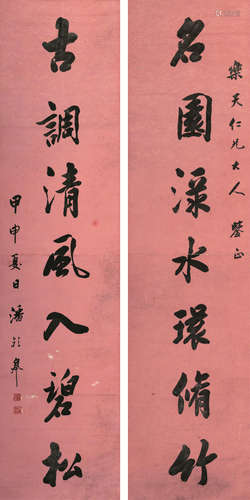 樂天仁兄大人 鑒正
名園淥水環脩竹
古調清風入碧松
甲申夏日潘齡皋